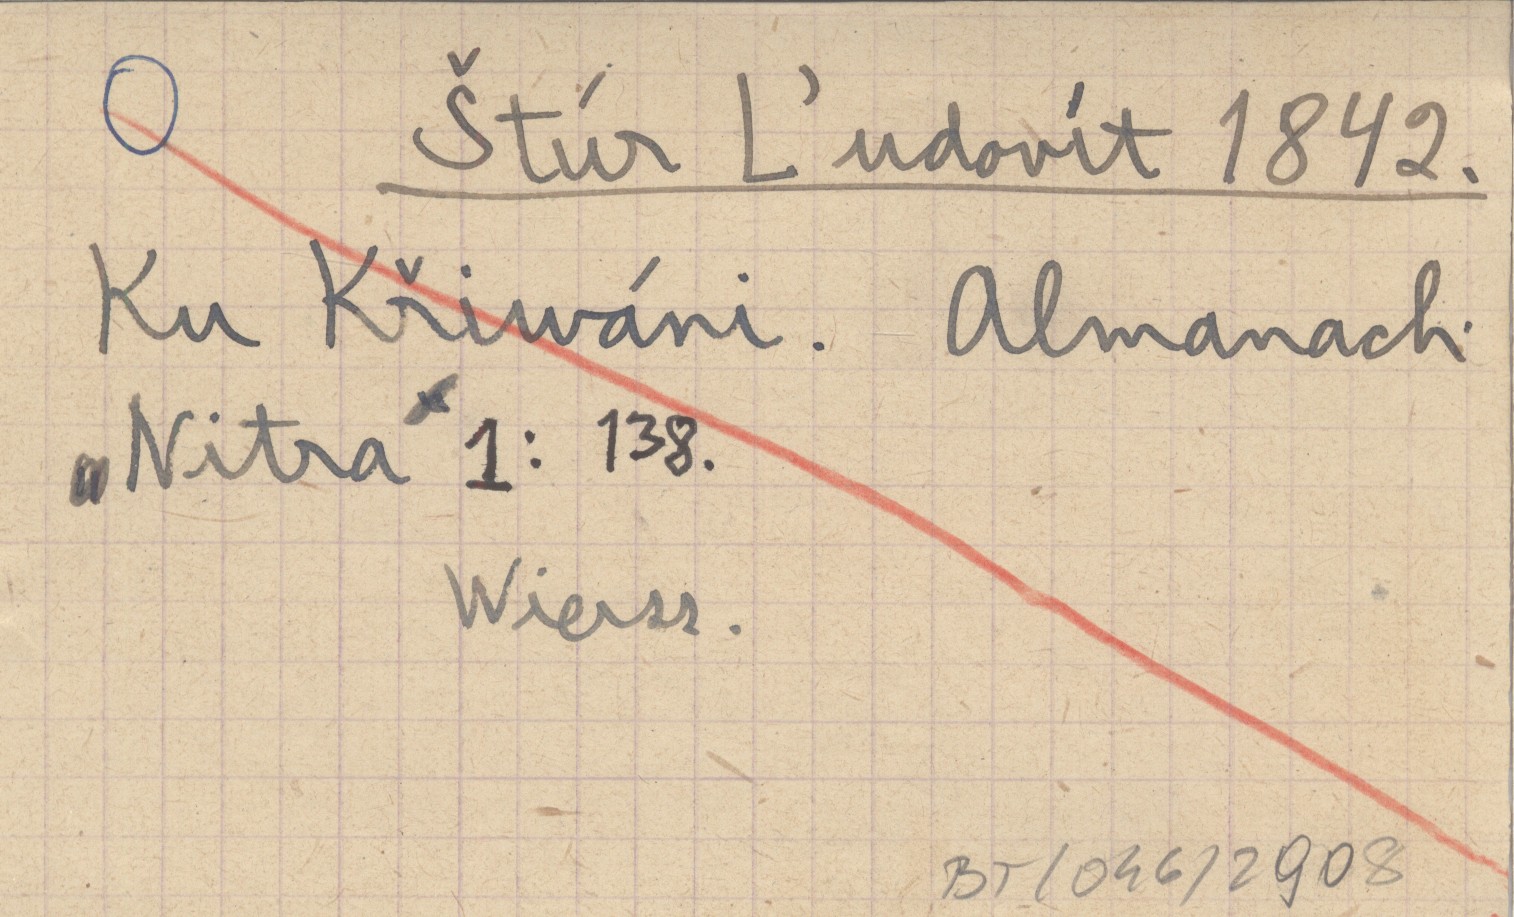 Štúr L'udovít 1842.
Ku Křiwáni. Almanach
„Nitra" 1: 138.
Wiersz.
BT/046/2908